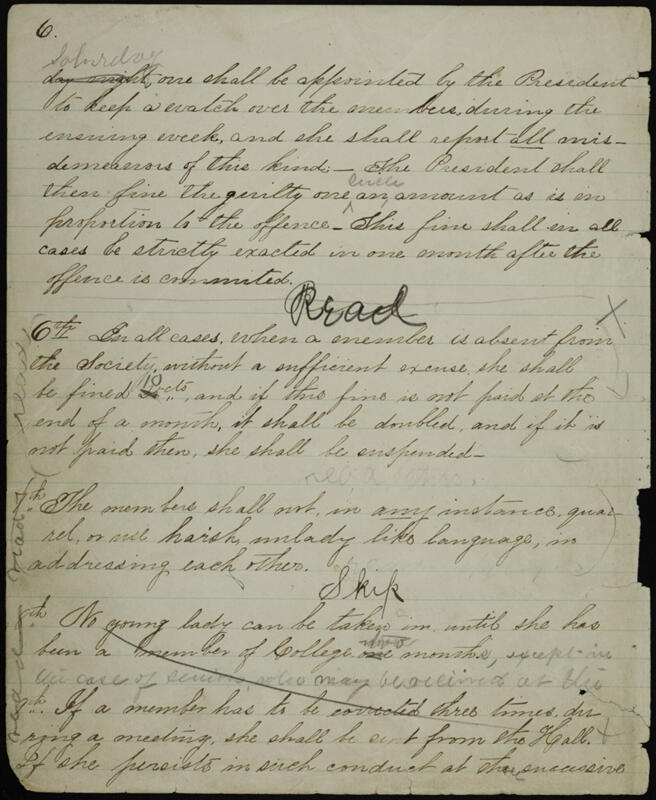 6.
Saturday
day night, one shall be appointed by the President
to keep a watch over the members, during the
ensuing week, and she shall report all mis-
demeanors of this kind; — The President shall
such
then fine the guilty one an amount as is in
proportion to the offence — This fine shall in all
cases be strictly exacted in one month after the
offence is commited.
Read
6th In all cases, when a member is absent from
the Society, without a sufficient excuse, she shall
be fined 10 cts, and if this fine is not paid at the
end of a month, it shall be doubled, and if it is
not paid then, she shall be suspended —
read this.
th The members shall not, in any instance, quar-
rel, or use harsh, unlady like language, in
addressing each other.
Skip
th No young lady can be taken in until she has
two
been a member of College one months, except in
the case of seniors, who may be received at the
th. If a member has to be corrected three times, du-
ring a meeting, she shall be sent from the Hall.
If she persists in such conduct at the successive
read
ready
read